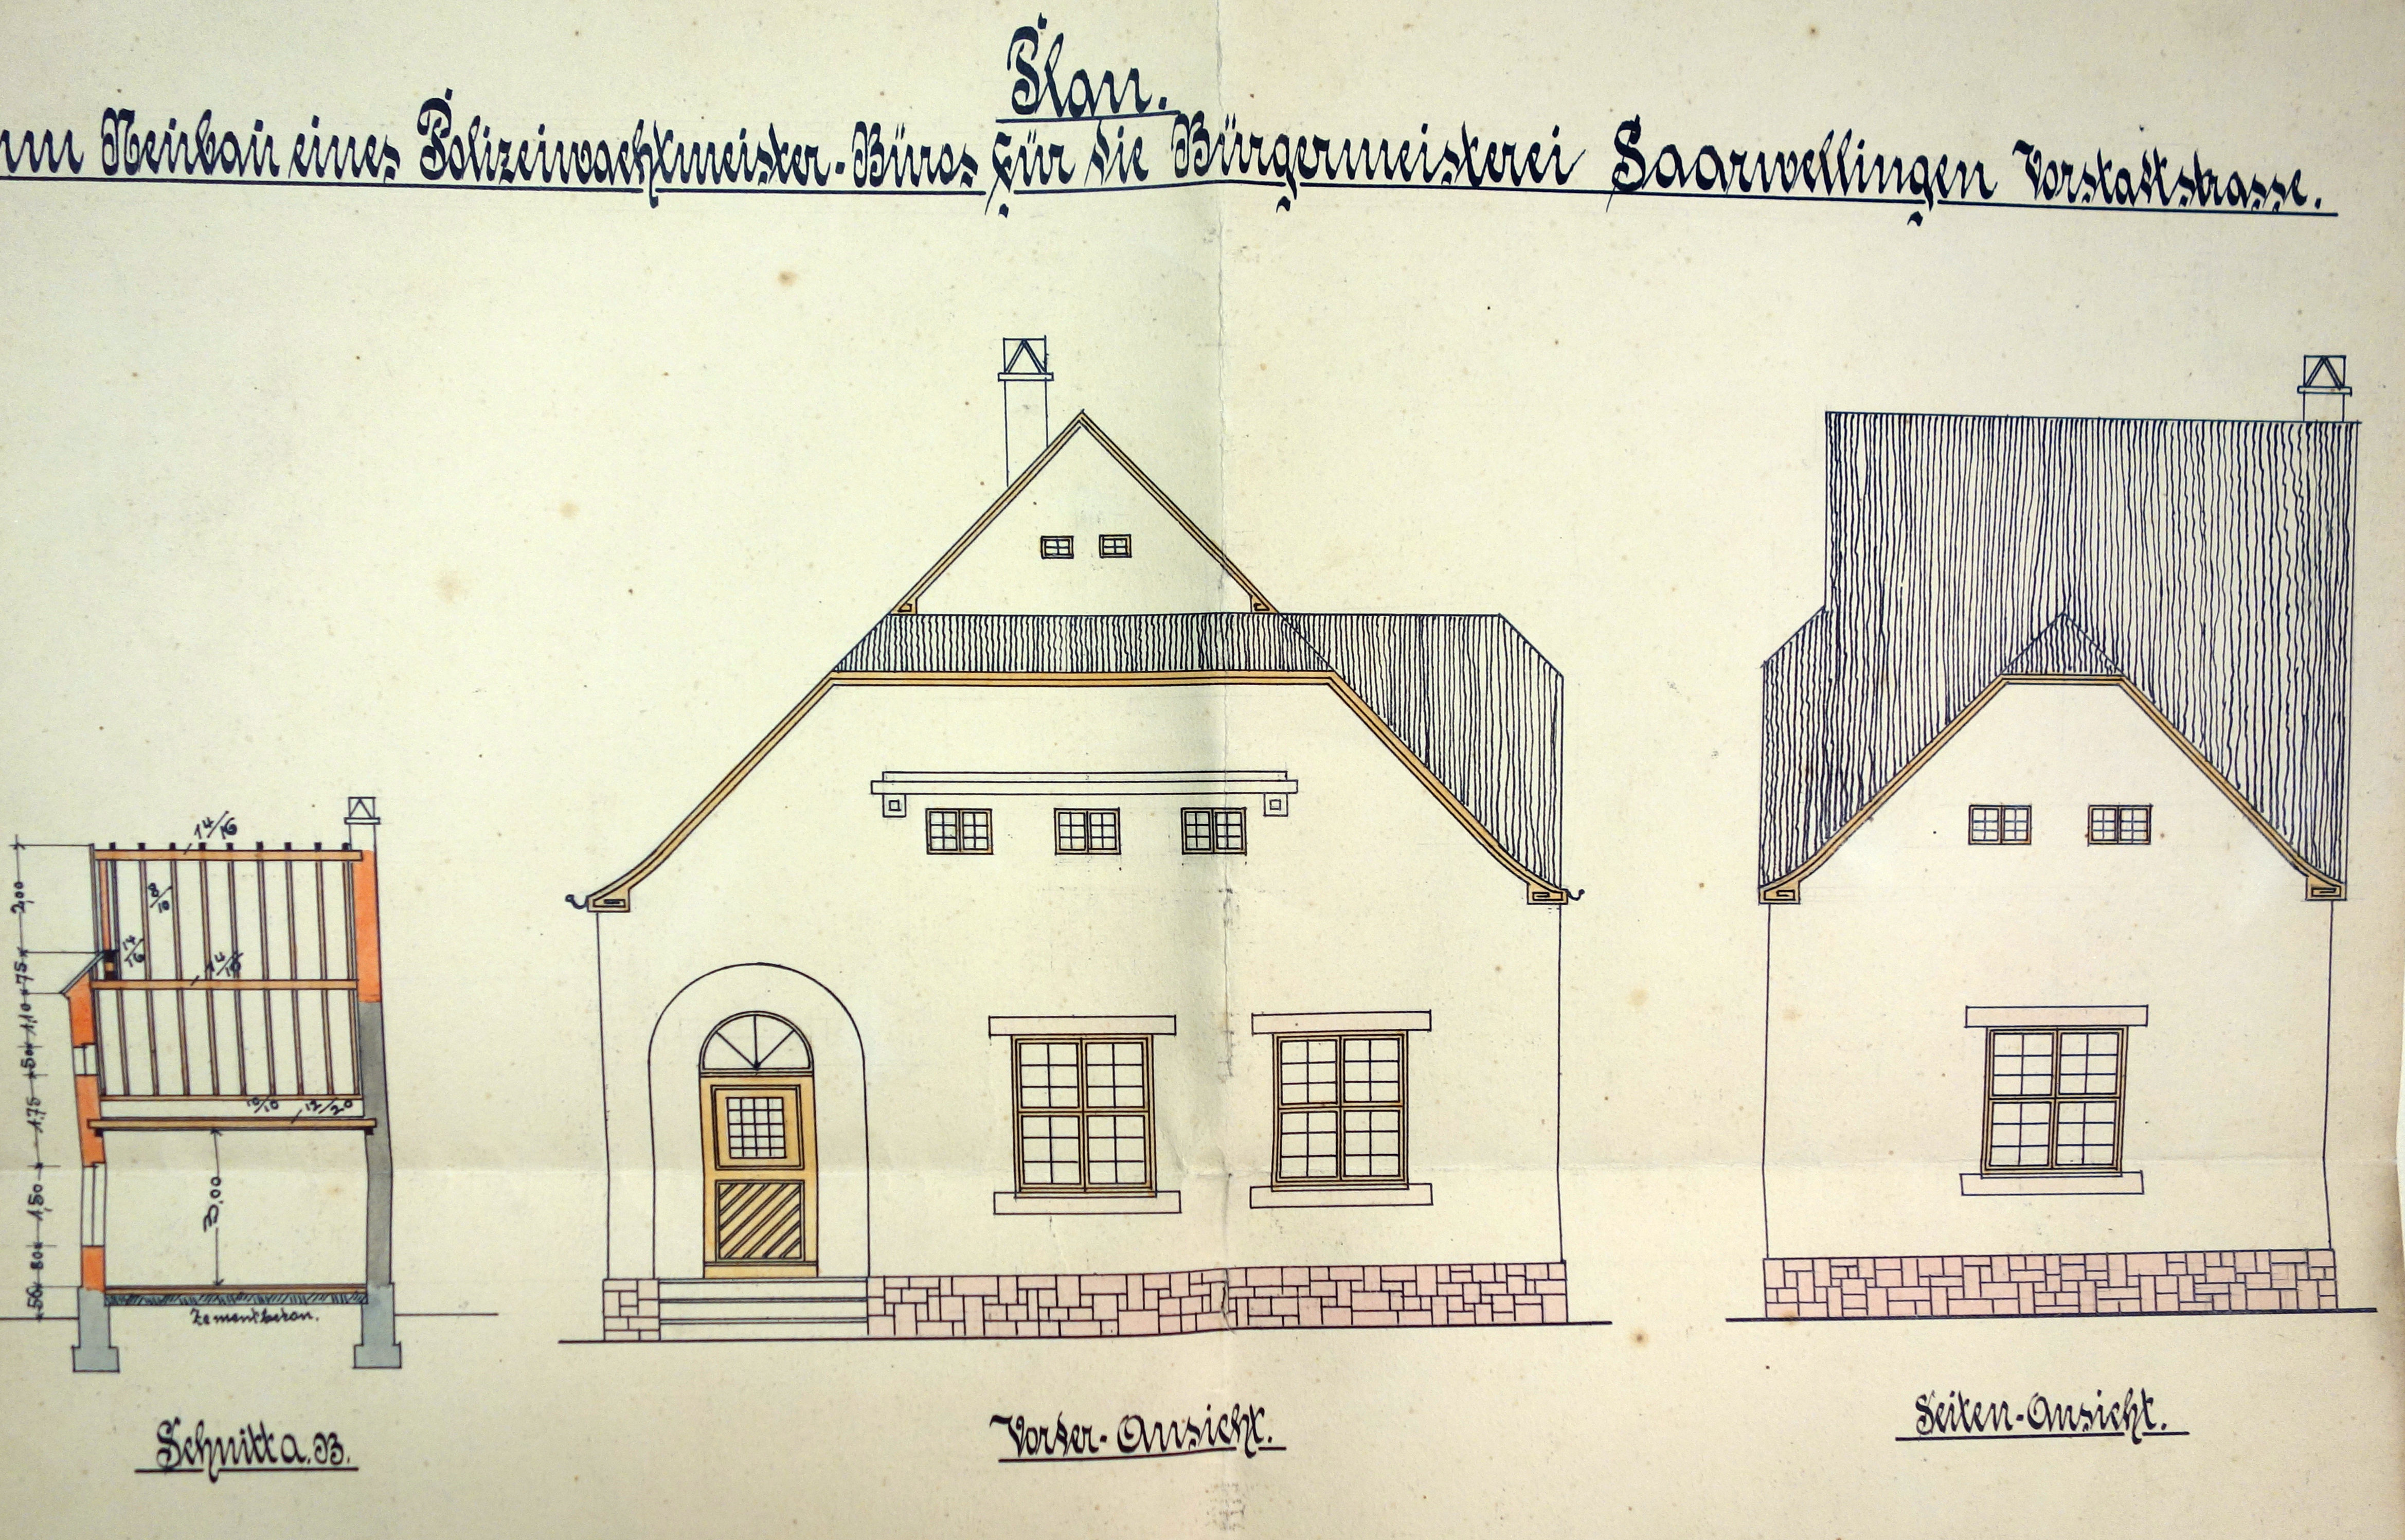 Plan.
um Neubau eines Polizeiwachtmeister-Büros für die Bürgermeisterei Saarwellingen Vorstattstrasse.
14/16
8/10
14/16
14/16
10/10
12/20
2,00
75
1,10
50
1,75
1,50
80
50
3,00
Zementbeton.
Schnitt a. B.
Vorder-Ansicht.
Seiten-Ansicht.